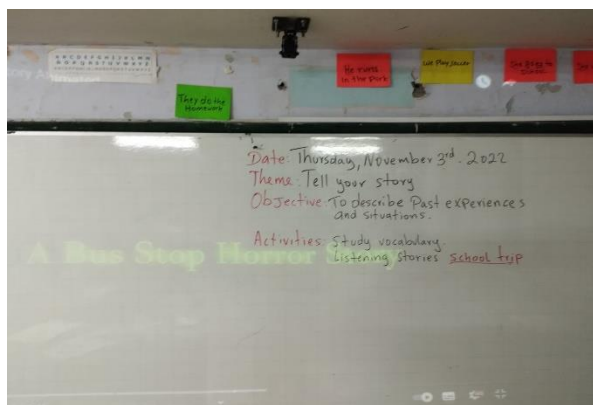 They do the
Homework
He runs
in the park
We Play soccer
She goes to
School
She
Date: Thursday, November 3rd. 2022
Theme: Tell your story
Objective: To describe Past experiences
and situations.
Activities: Study vocabulary.
Listening stories school trip
A Bus Stop Horror Story